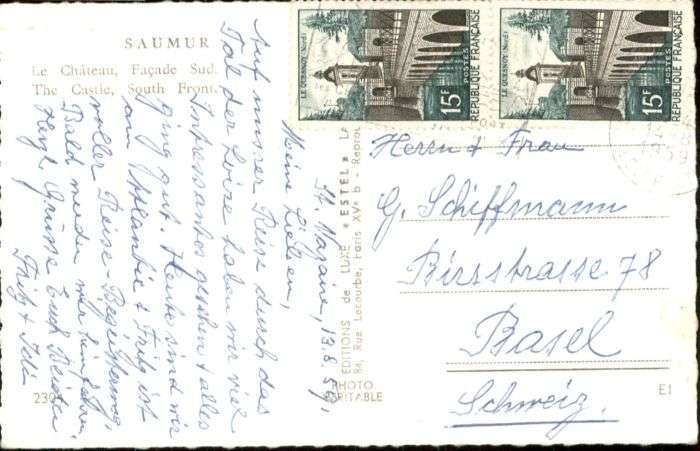 SAUMUR
Le Château, Façade Sud.
The Castle, South Front.
St. Nazaire, 13.8.59,
Meine Lieben,
Auf unsrer Reise durch das
Tal der Loire haben wir viel
Interessantes gesehen & alles
ging gut. Heute sind wir
am Atlantic & Fritz ist
voller Reise-Begeisterung.
Bald werden wir
Herzl. Grüsse Euch Beiden
Fritz & Idi
230
EDITIONS de LUXE "ESTEL"
84, Rue Lecourbe, Paris XVe b - Reprod
PHOTO
VÉRITABLE
LE QUESNOY (Nord)
15F
POSTES
RÉPUBLIQUE FRANÇAISE
LE QUESNOY (Nord)
15F
POSTES
RÉPUBLIQUE FRANÇAISE
1959
Herrn & Frau
G. Schiffmann
Birsstrasse 78
Basel
Schweiz.
EI